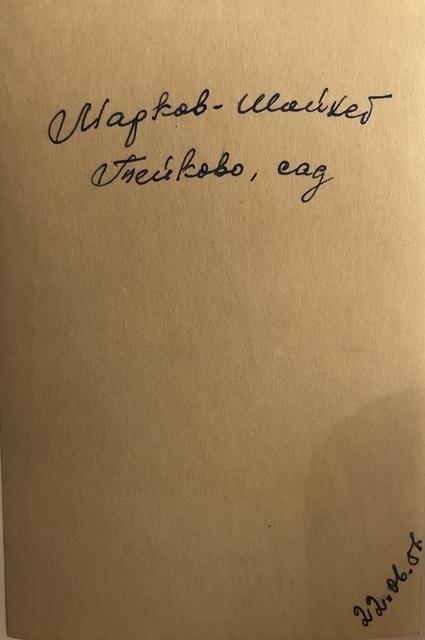 Марков-Шойхет
Тейково, сад
22.06.56